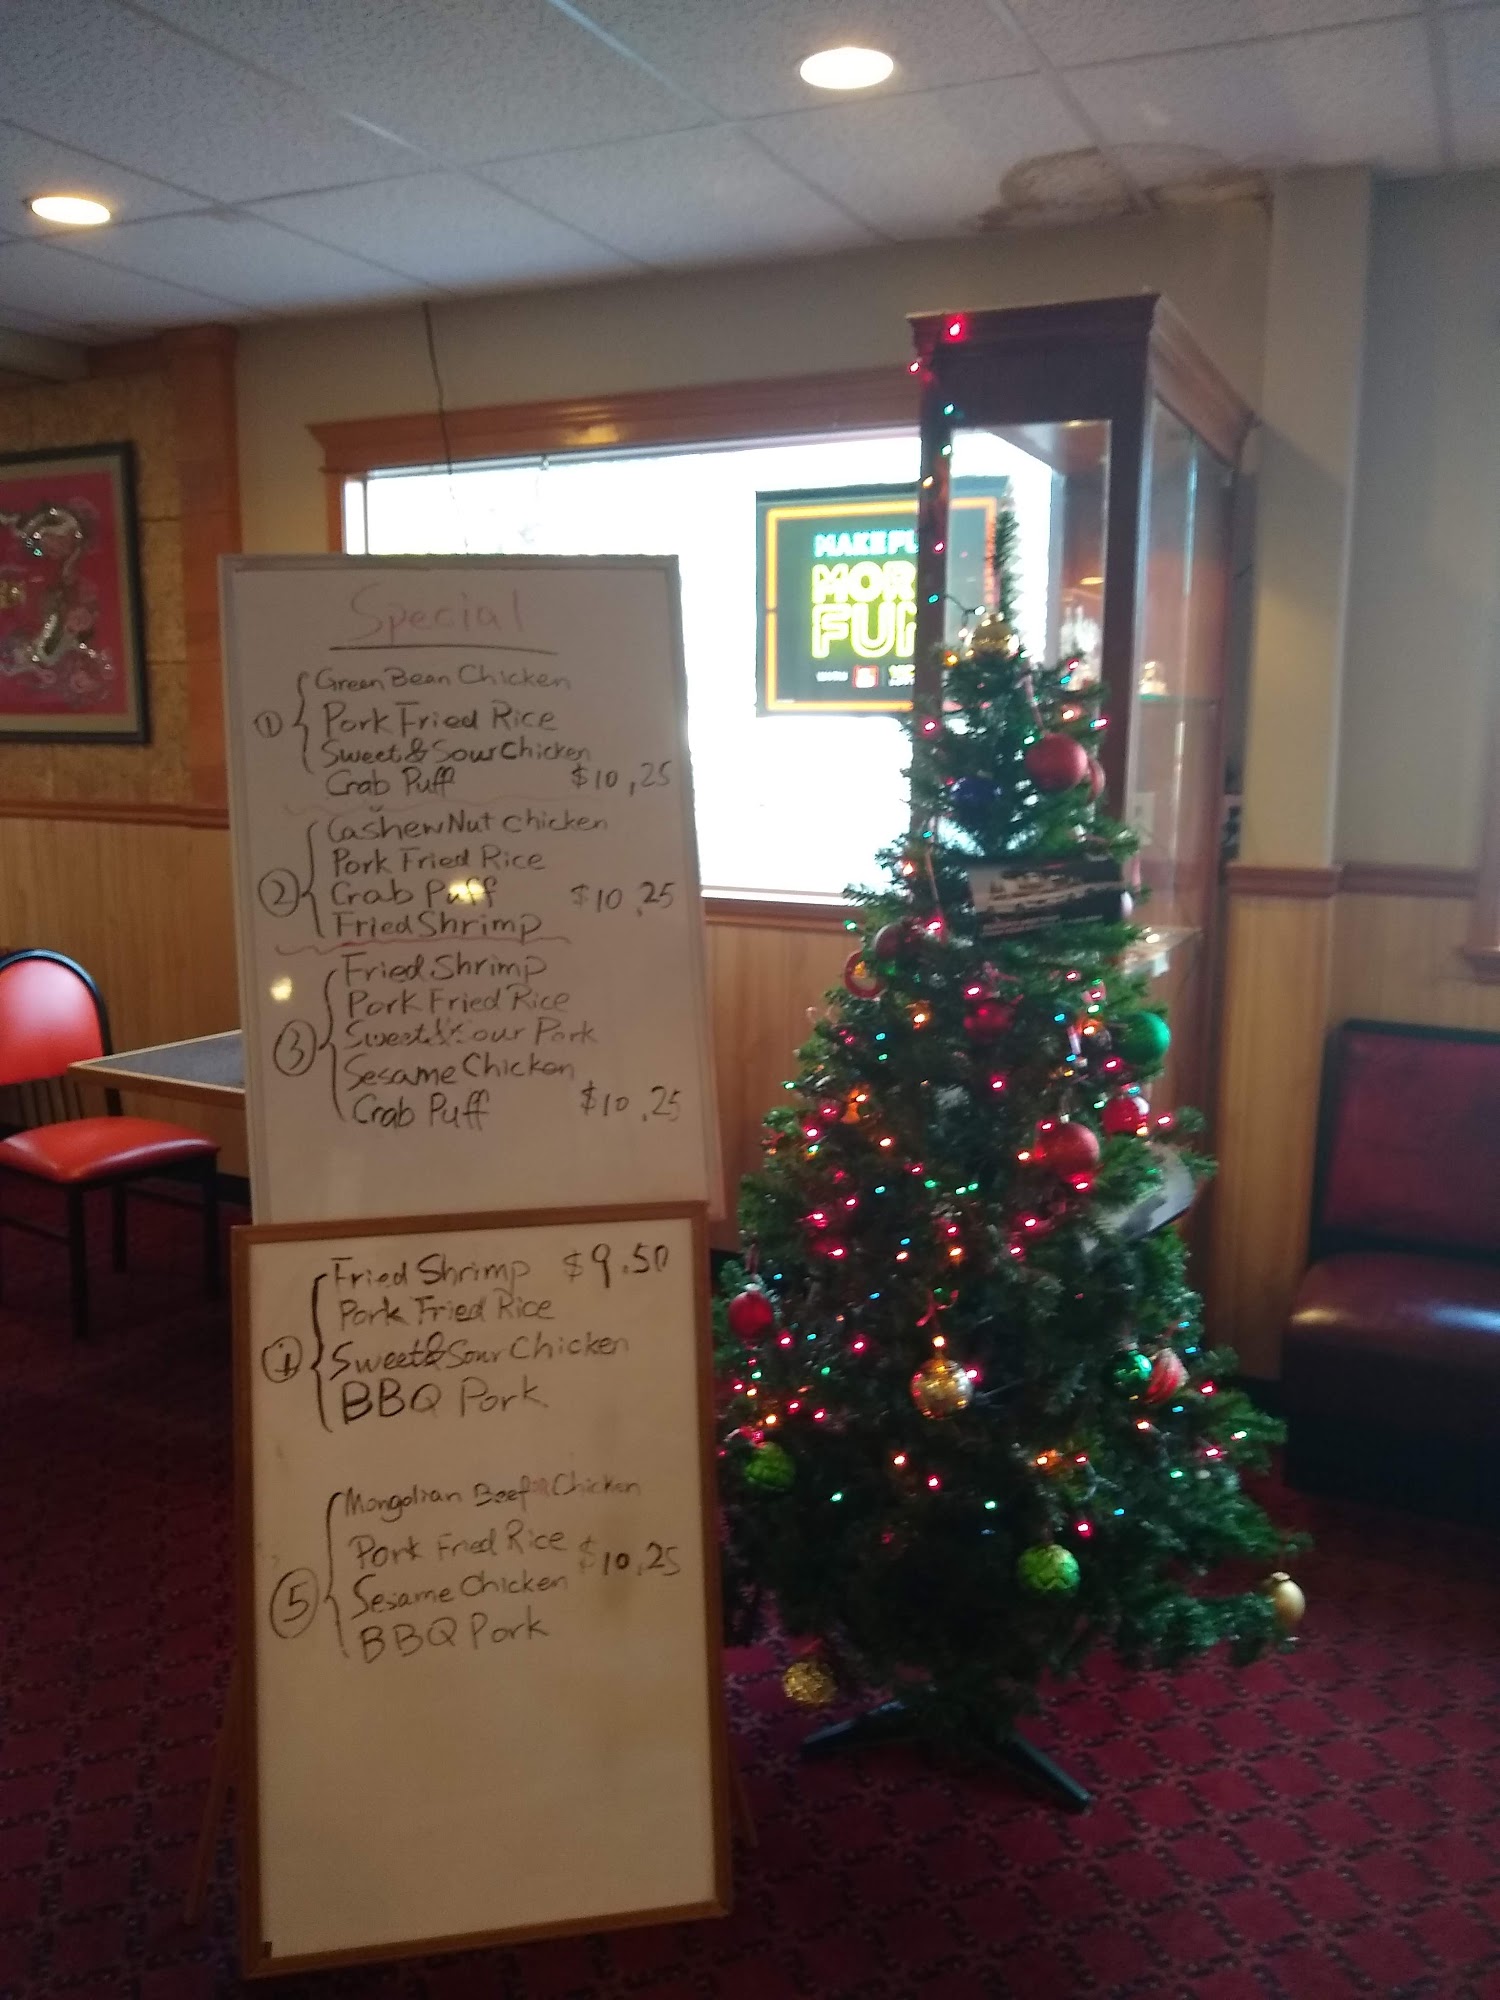 Special
① Green Bean Chicken
Pork Fried Rice
Sweet & Sour Chicken
Crab Puff $10,25
Cashew Nut Chicken
Pork Fried Rice
② Crab Puff $10.25
Fried Shrimp
Fried Shrimp
Pork Fried Rice
③ Sweet & Sour Pork
Sesame Chicken
Crab Puff $10.25
Fried Shrimp $9.50
Pork Fried Rice
④ Sweet & Sour Chicken
BBQ Pork
Mongolian Beef OR Chicken
Pork Fried Rice $10,25
⑤ Sesame Chicken
BBQ Pork
MAKE
MOR
FUN